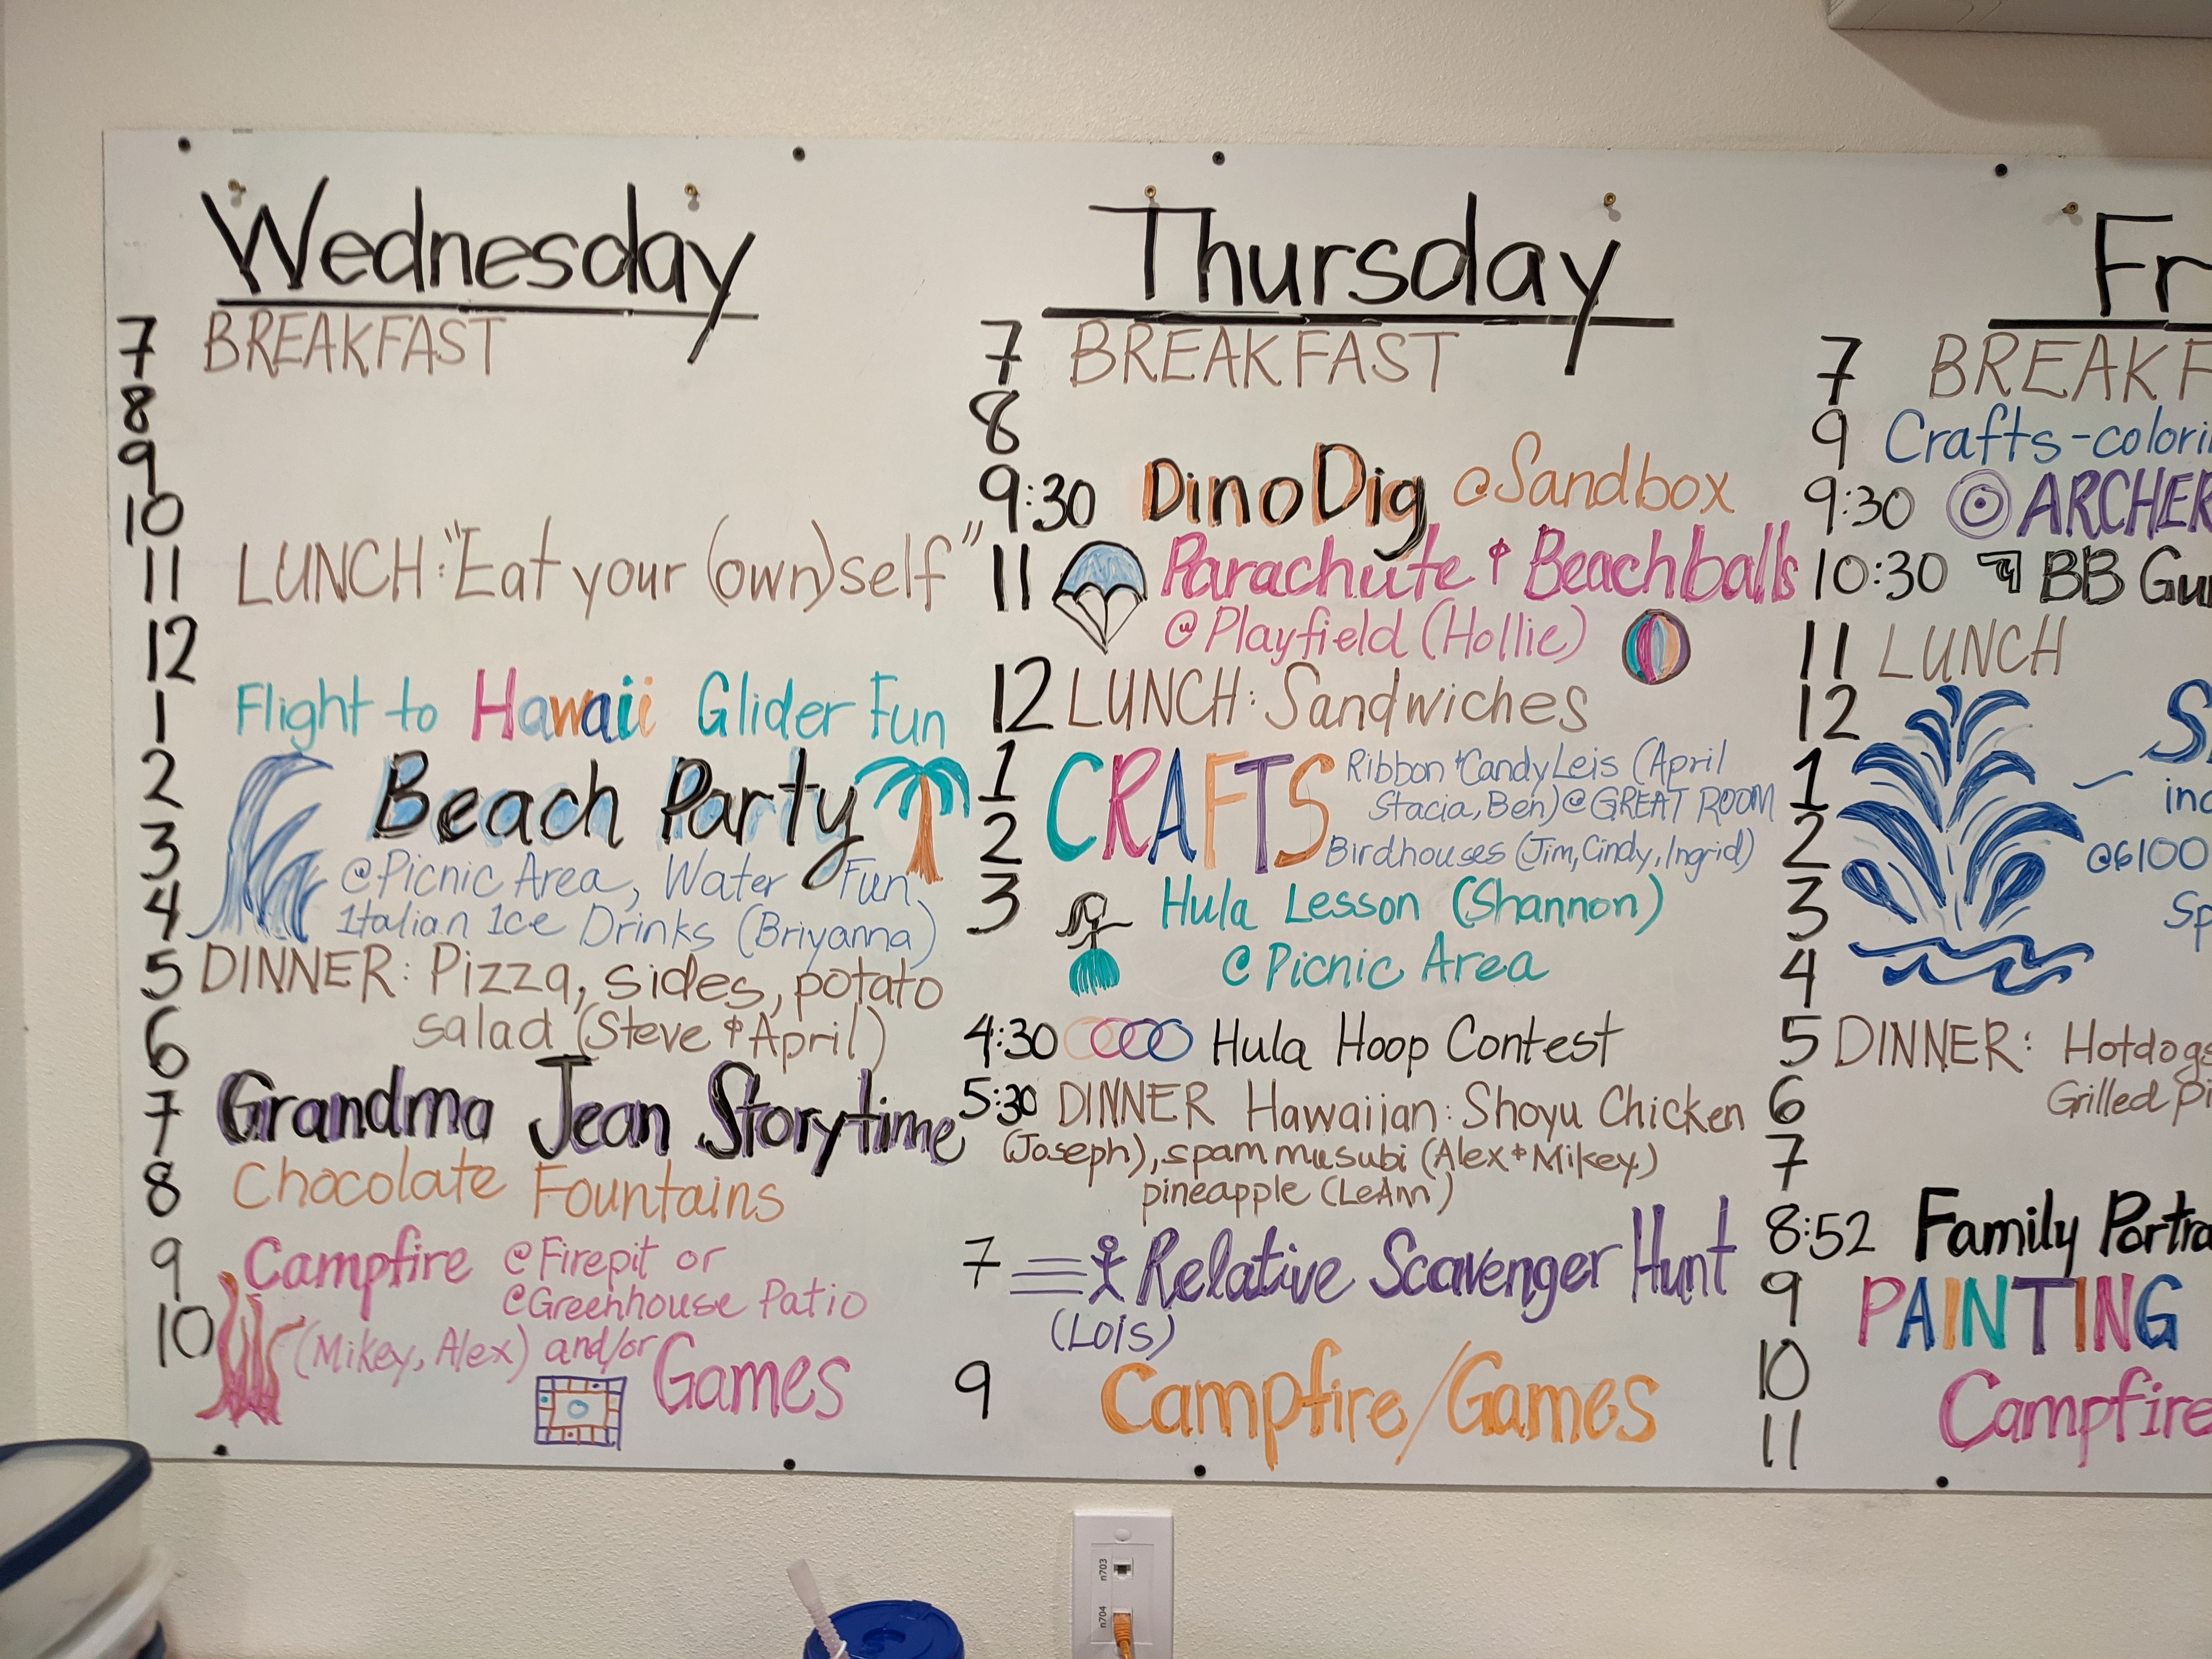 Wednesday
7 BREAKFAST
8
9
10
11 LUNCH: "Eat your (own)self"
12
1 Flight to Hawaii Glider Fun
2 Beach Party
3 @Picnic Area, Water Fun
4 Italian Ice Drinks (Briyanna)
5 DINNER: Pizza, sides, potato
6 salad (Steve & April)
7 Grandma Jean Storytime
8 Chocolate Fountains
9 Campfire @Firepit or
@Greenhouse Patio
10 (Mikey, Alex) and/or Games
Thursday
7 BREAKFAST
8
9:30 Dino Dig @Sandbox
11 Parachute & Beachballs
@Playfield (Hollie)
12 LUNCH: Sandwiches
1 CRAFTS Ribbon & Candy Leis (April
Stacia, Ben) @ GREAT ROOM
2 Birdhouses (Jim, Cindy, Ingrid)
3 Hula Lesson (Shannon)
@ Picnic Area
4:30 Hula Hoop Contest
5:30 DINNER Hawaiian: Shoyu Chicken
(Joseph), spam musubi (Alex & Mikey)
pineapple (LeAnn)
7 Relative Scavenger Hunt
(Lois)
9 Campfire/Games
Fr
7 BREAKF
9 Crafts-colori
9:30 ARCHER
10:30 BB Gu
11 LUNCH
12 S
1 inc
2 @6100
3 Sp
4
5 DINNER: Hotdogs
6 Grilled Pi
7
8:52 Family Portra
9 PAINTING
10
11 Campfire
n703
n704